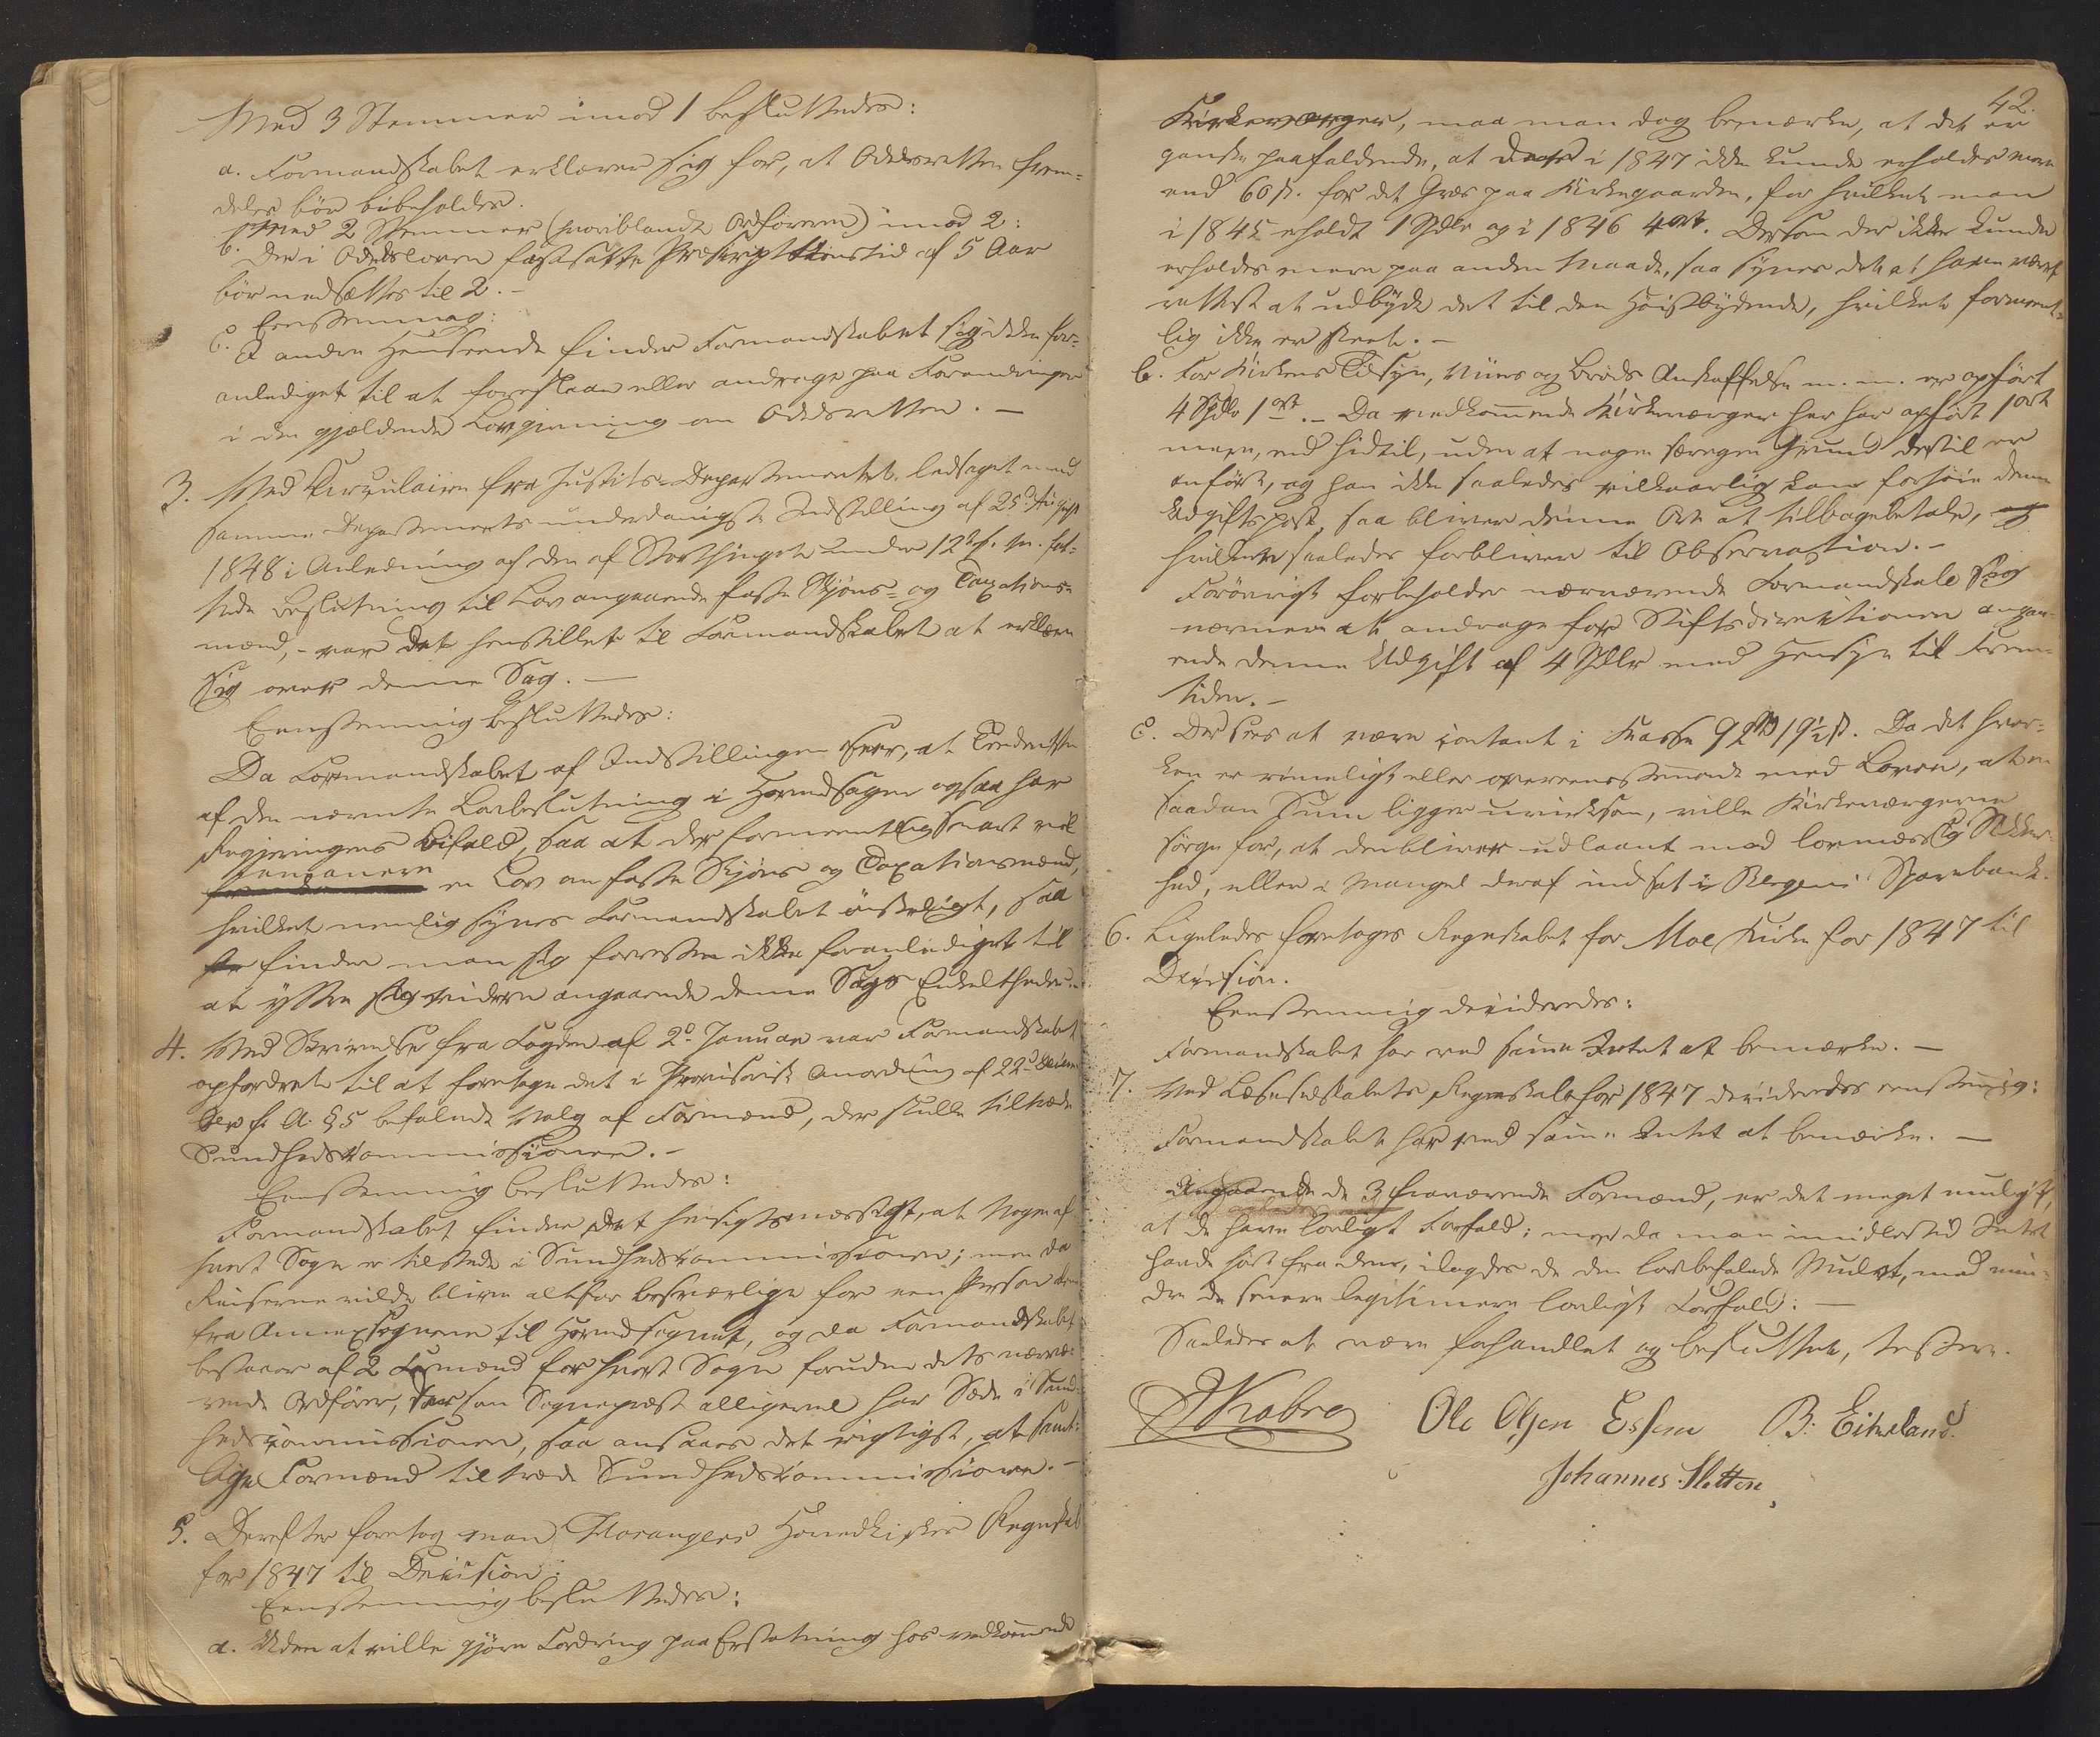 Med 3 Stemmer imod 1 besluttedes:
a. Formandskabet erklærer sig for, at Odelsretten frem-
deles bör bibeholdes.
Med 2 Stemmer (hvoriblandt Ordföreren) imod 2:
b. Den i Odelsloven fastsatte Præskriptionstid af 5 Aar
bör nedsættes til 2. -
Eenstemmig:
c. I andre Henseende finder Formandskabet sig ikke for-
anlediget til at foreslaae eller andrage paa Forandringer
i den gjældende Lovgivning om Odelsretten. -
3. Med Circulaire fra Justits-Departementet, ledsaget med
samme Departements underdanigste Indstilling af 25de August
1848 i Anledning af den af Storthinget under 12te f. M. fat-
tede Beslutning til Lov angaaende faste Skjöns- og Taxations-
mænd, - var det henstillet til Formandskabet at erklære
sig over denne Sag. -
Eenstemmig besluttedes:
Da Formandskabet af Indstillingen seer, at Tendentsen
af den nævnte Lovbeslutning i Hovedsagen ogsaa har
Regjeringens Bifald, saa at der formeentlig snart vil
emanere
en Lov om faste Skjöns og Taxationsmænd,
hvilket nemlig synes Formandskabet önskeligt, saa
finder man sig forresten ikke foranlediget til
at yttre sig videre angaaende denne Sags Enkeltheder. -
4. Med Skrivelse fra Fogden af 2de Januar var Formandskabet
opfordret til at foretage det i Provisorisk Anordning af 22de Decem-
ber f. A. §5 befalede Valg af Formænd, der skulle tiltræde
Sundhedskommissionen. -
Eenstemmig besluttedes:
Formandskabet finder det hensigtsmæssigt, at Nogen af
hvert Sogn er tilstede i Sundhedskommissionen; men da
Reiserne vilde blive altfor besværlige for een Person
fra Annexsognene til Hovedsognet, og da Formandskabet
bestaaer af 2 Formænd for hvert Sogn foruden dets nærvæ-
rende Ordförer, der som Sognepræst alligevel har Sæde i Sund-
hedscommissionen, saa ansaaes det rigtigst, at samt-
lige Formænd tiltræde Sundhedskommissionen. -
5. Derefter foretog man Hosangers Hovedkirkes Regnskab
for 1847 til Decision:
Eenstemmig besluttedes:
a. Uden at ville gjöre Fordring paa Erstatning hos vedkommende
42.
Kirkeværger, maa man dog bemærke, at det er
ganske paafaldende, at der i 1847 ikke kunde erholdes mere
end 60 ß. for det Græs paa Kirkegaarden, for hvilket man
i 1845 erholdt 1 Spdlr og i 1846 4 ort. Dersom der ikke kunde
erholdes mere paa anden Maade, saa synes det at have været
rettest at udbyde det til den Höistbydende, hvilket forment-
lig ikke er skeet. -
b. For Kirkens Tilsyn, Viins og Bröds Anskaffelse m. m. er opfört
4 Spdlr 1 ort. - Da vedkommende Kirkeværger her har opfört 1 ort
mere, end hidtil, uden at nogen særegen Grund dertil er
anfört, og han ikke saaledes vilkaarlig kan forhöie denne
Udgiftspost, saa bliver denne Ort at tilbagebetale,
hvilket saaledes forbliver til Observation. -
Forövrigt forbeholder nærværende Formandskab sig
nærmere at andrage for Stiftsdirektionen angaa-
ende denne Udgift af 4 Spdlr med Hensyn til Frem-
tiden. -
c. Der sees at være contant i Kasse 92 Spd 19½ ß. Da det hver-
ken er rimeligt eller overeensstemmende med Loven, at en
saadan Sum ligger uvirksom, ville Kirkeværgerne
sörge for, at den bliver udlaant mod lovmæssig Sikker-
hed, eller i Mangel deraf indsat i Bergens Sparebank.
6. Ligeledes foretoges Regnskabet for Moe Kirke for 1847 til
Decision.
Eenstemmig decideredes:
Formandskabet har ved samme Intet at bemærke. -
7. Ved Læseselskabets Regnskab for 1847 decideredes eenstemmig:
Formandskabet har ved samme Intet at bemærke. -
Angaaende de 3 fraværende Formænd, er det meget muligt,
at de have lovligt Forfald; men da man imidlertid Intet
havde hört fra dem, ilagdes de den lovbefalede Mulct, med min-
dre de senere legitimere lovligt Forfald. -
Saaledes at være forhandlet og besluttet, testere.
Krabre Ole Olsen Essem B. Eikeland.
Johannes Sletten,